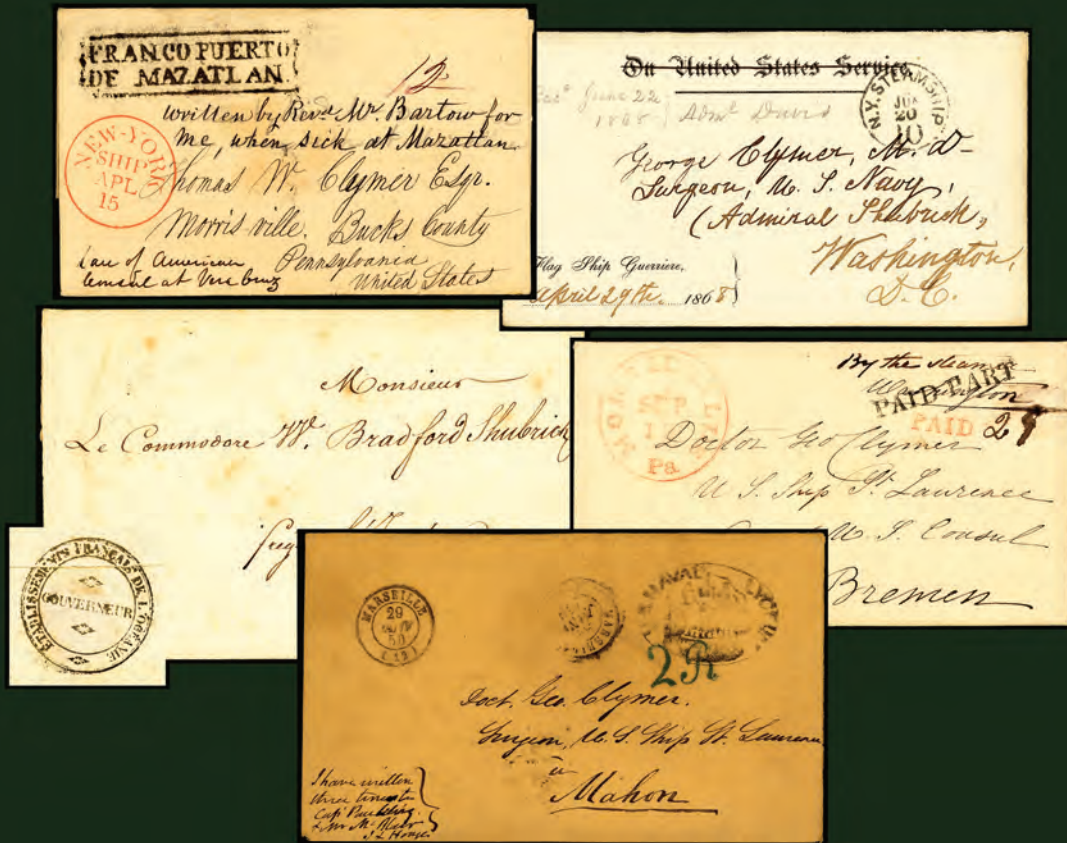 FRANCO PUERTO
DE MAZATLAN
12
written by Revd. Mr. Bartow for
me, when sick at Mazatlan
NEW-YORK
SHIP
APL
15
Thomas W. Clymer Esqr.
Morrisville. Bucks County
Pennsylvania
United States
Care of American
Consul at Vera Cruz
On United States Service
June 22
Adml Davis
N.Y. STEAMSHIP
20
10
George Clymer, M. D-
Surgeon, U. S. Navy,
(Admiral Shubrick,
Washington,
D. C.
Flag Ship Guerriere,
April 29th. 1868
Monsieur
Le Commodore W. Bradford Shubrick
ETABLISSEMENTS FRANÇAIS DE L'OCÉANIE
GOUVERNEUR
By the steam
PAID PART
PAID
Pa
Doctor Geo Clymer
U S. Ship St. Lawrence
U. S. Consul
Bremen
MARSEILLE
29
50
(12)
2R
Doct. Geo. Clymer.
Surgeon, U. S. Ship St. Lawrence
a
Mahon
I have written